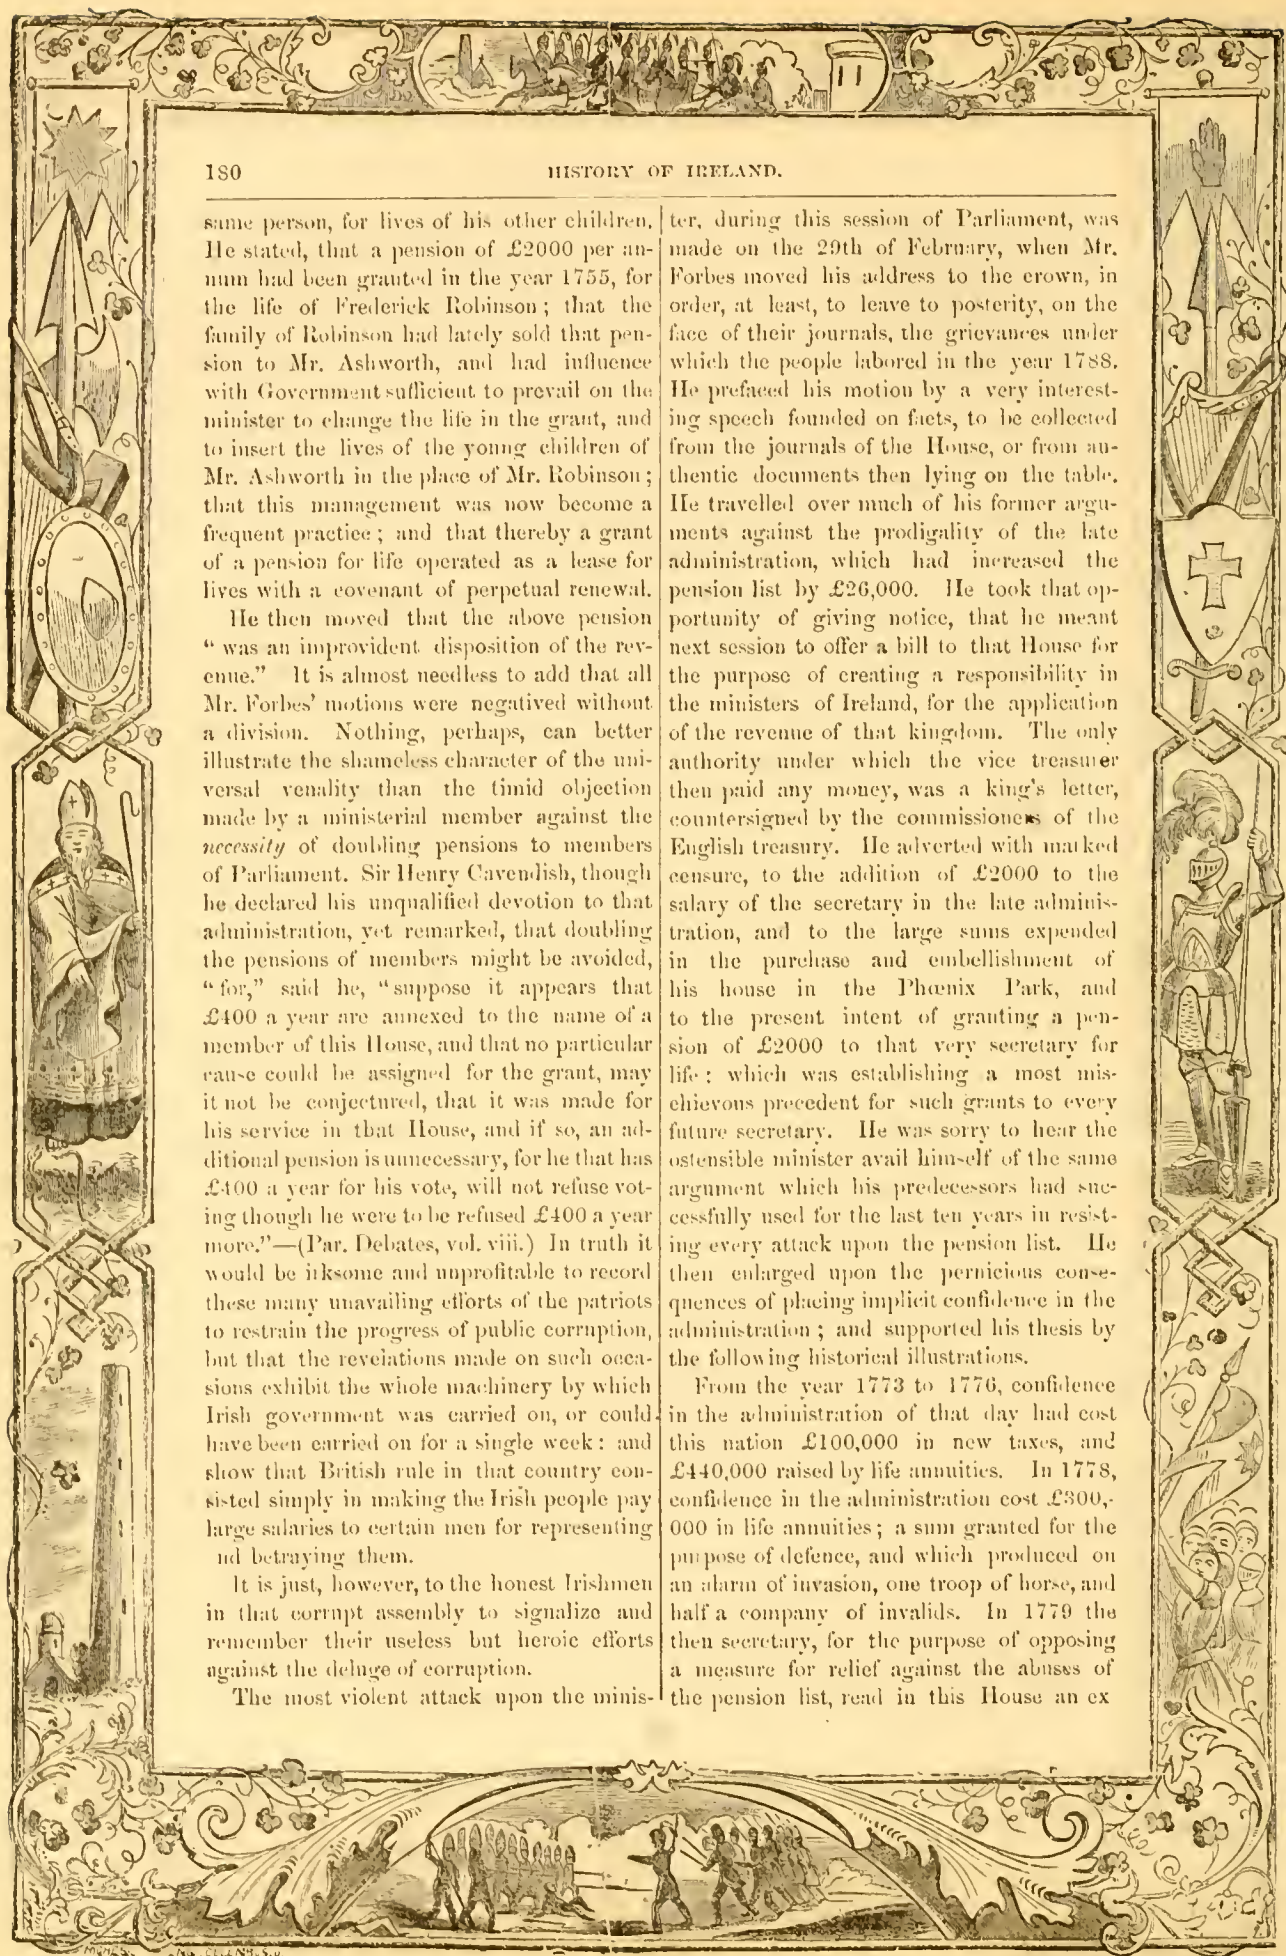 180
HISTORY OF IRELAND.
same person, for lives of his other children.
He stated, that a pension of £2000 per an-
num had been granted in the year 1755, for
the life of Frederick Robinson; that the
family of Robinson had lately sold that pen-
sion to Mr. Ashworth, and had influence
with Government sufficient to prevail on the
minister to change the life in the grant, and
to insert the lives of the young children of
Mr. Ashworth in the place of Mr. Robinson;
that this management was now become a
frequent practice; and that thereby a grant
of a pension for life operated as a lease for
lives with a covenant of perpetual renewal.
He then moved that the above pension
"was an improvident disposition of the rev-
enue." It is almost needless to add that all
Mr. Forbes' motions were negatived without
a division. Nothing, perhaps, can better
illustrate the shameless character of the uni-
versal venality than the timid objection
made by a ministerial member against the
necessity of doubling pensions to members
of Parliament. Sir Henry Cavendish, though
he declared his unqualified devotion to that
administration, yet remarked, that doubling
the pensions of members might be avoided,
"for," said he, "suppose it appears that
£400 a year are annexed to the name of a
member of this House, and that no particular
cause could be assigned for the grant, may
it not be conjectured, that it was made for
his service in that House, and if so, an ad-
ditional pension is unnecessary, for he that has
£400 a year for his vote, will not refuse vot-
ing though he were to be refused £400 a year
more."—(Par. Debates, vol. viii.) In truth it
would be irksome and unprofitable to record
these many unavailing efforts of the patriots
to restrain the progress of public corruption,
but that the revelations made on such occa-
sions exhibit the whole machinery by which
Irish government was carried on, or could
have been carried on for a single week: and
show that British rule in that country con-
sisted simply in making the Irish people pay
large salaries to certain men for representing
nd betraying them.
It is just, however, to the honest Irishmen
in that corrupt assembly to signalize and
remember their useless but heroic efforts
against the deluge of corruption.
The most violent attack upon the minis-
ter, during this session of Parliament, was
made on the 29th of February, when Mr.
Forbes moved his address to the crown, in
order, at least, to leave to posterity, on the
face of their journals, the grievances under
which the people labored in the year 1788.
He prefaced his motion by a very interest-
ing speech founded on facts, to be collected
from the journals of the House, or from au-
thentic documents then lying on the table.
He travelled over much of his former argu-
ments against the prodigality of the late
administration, which had increased the
pension list by £26,000. He took that op-
portunity of giving notice, that he meant
next session to offer a bill to that House for
the purpose of creating a responsibility in
the ministers of Ireland, for the application
of the revenue of that kingdom. The only
authority under which the vice treasurer
then paid any money, was a king's letter,
countersigned by the commissioners of the
English treasury. He adverted with marked
censure, to the addition of £2000 to the
salary of the secretary in the late adminis-
tration, and to the large sums expended
in the purchase and embellishment of
his house in the Phœnix Park, and
to the present intent of granting a pen-
sion of £2000 to that very secretary for
life: which was establishing a most mis-
chievous precedent for such grants to every
future secretary. He was sorry to hear the
ostensible minister avail himself of the same
argument which his predecessors had suc-
cessfully used for the last ten years in resist-
ing every attack upon the pension list. He
then enlarged upon the pernicious conse-
quences of placing implicit confidence in the
administration; and supported his thesis by
the following historical illustrations.
From the year 1773 to 1776, confidence
in the administration of that day had cost
this nation £100,000 in new taxes, and
£440,000 raised by life annuities. In 1778,
confidence in the administration cost £300,-
000 in life annuities; a sum granted for the
purpose of defence, and which produced on
an alarm of invasion, one troop of horse, and
half a company of invalids. In 1779 the
then secretary, for the purpose of opposing
a measure for relief against the abuses of
the pension list, read in this House an ex